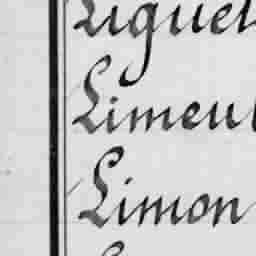 Liguel
Limeul
Limon